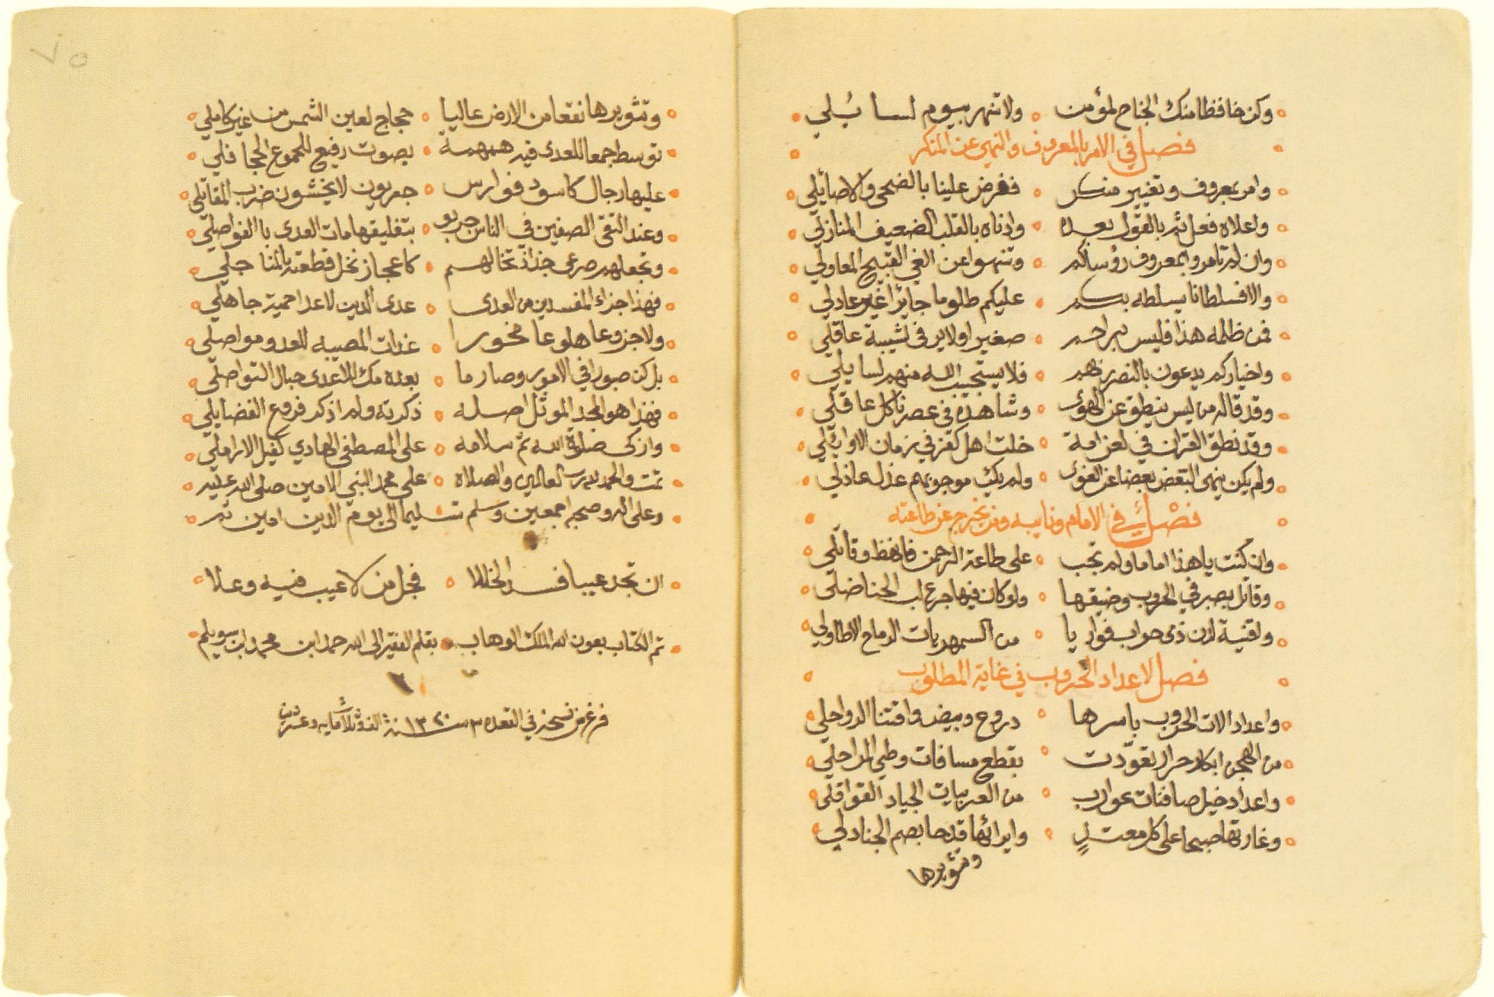 وكن خافظا منك الجناح لمؤمن ولا تنهر بيوم لسايلي
فصل في الامر بالمعروف والنهي عن المنكر
وامر بعروف وتغيير منكر ففرض علينا بالضحى والاصايلي
واعلاه فعل ثم بالقول بعده وادناه بالقلب الضعيف المنازلي
وان لم تامروا بمعروف رؤسائكم وتنهوا عن الغي القبيح المعاولي
والا فسلطانا يسلطه بكم عليكم ظلوما جايرا غير عادلي
فمن ظلمه هذا فليس براحم صغيرا ولا ير في لشيبة عاقلي
واخياركم يدعون بالنصر ربهم فلا يستجيب الله منهم لسايلي
وقد قاله من ليس ينطق عن الهوى وشاهده في عصرنا كل عاقلي
وقد نطق القران في لعن امة خلت اهل كفر في زمان الاوائلي
ولم يكن ينهى البعض بعضا عن الغوى ولم يك موجوبهم عذل عاذلي
فصل في الامام ونايبه ومن يخرج عن طاعته
وان كنت يا هذا اماما ولم تجب على طاعة الرحمن فانهظ وقاتلي
وقاتل بصبر في الحروب وضيقها ولو كان فيها جرع لب الحناضلي
ولقنية لدن ذي حراب فواريا من السمهريات الرماح الاطاولي
فصل لاعداد الحروب في غاية المطلوب
واعداد الات الحروب باسرها دروع وبيض واقتنا الرواحلي
من الهجن ابكار حرار تعودت بقطع مسافات وطي المراحلي
واعداد خيل صافنات عوارب من العربيات الجياد القوافلي
وغارتها صبحا على كل معتد وايرائها قدحا بصم الجنادلي
وتثويرها
وتثويرها نقعا من الارض عاليا حجاج لعين الشمس من غير كاملي
توسط جمعا للعدى فيه همهمة بصوت رفيع للجموع الحجافلي
عليها رجال كاسود فوارس جعريون لا يخشون ضرب المقاتلي
وعند التقى الصفين في الناس جربوا بتفليقها مات العدى باالفواصلي
وتجعلهم صرعى جذاذ تخالهم كاعجاز نخل قطعت بالمناجلي
فهذا جزاء المفسدين من العدى عدى الدين لا عدا حمية جاهلي
ولا جزوعا هلوعا مخورا غذات المصيبه للعدو مواصلي
بل كن صبورا في الامور وصارما بعده مك للاعدى حبال التواصلي
فهذا هو المجد الموثل اصله ذكرته ولم اذكر فروع الفضايلي
وازكى صلوة الله ثم سلامه على المصطفى الهادي كفيل الاراملي
تمت والحمد لله رب العالمين والصلاة على محمد النبي الامين صلى الله عليه
وعلى اله وصحبه اجمعين وسلم تسليما الى يوم الدين امين تم
ان تجد عيبا فسد الخللا فجل من لا عيب فيه وعلا
تم الكتاب بعون الله الملك الوهاب بقلم الفقير الى الله حمد ابن محمد ابن سويلم
فرغ من نسخه في القعده ٣ سنة ١٣٢٠ سنة الف وثلاثمايه وعشرين
٧٥